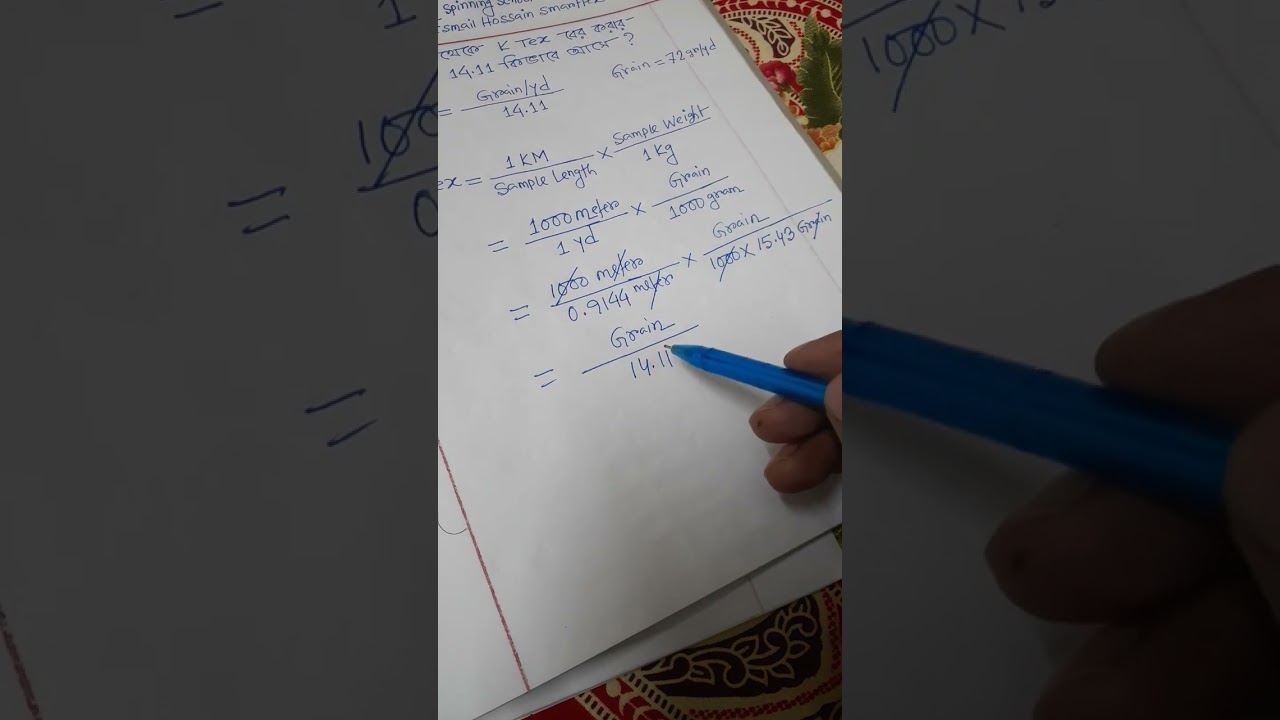 Spinning School
Ismail Hossain Smanttex
থেকে K Tex বের করার
14.11 কিভাবে আসে ?
Grain = 72 gr/yd
= Grain/yd
14.11
ex = 1 KM / Sample Length × Sample Weight / 1 Kg
= 1000 meter / 1 yd × Grain / 1000 gram
= 1000 meter / 0.9144 meter × Grain / 1000 × 15.43 Grain
= Grain / 14.11